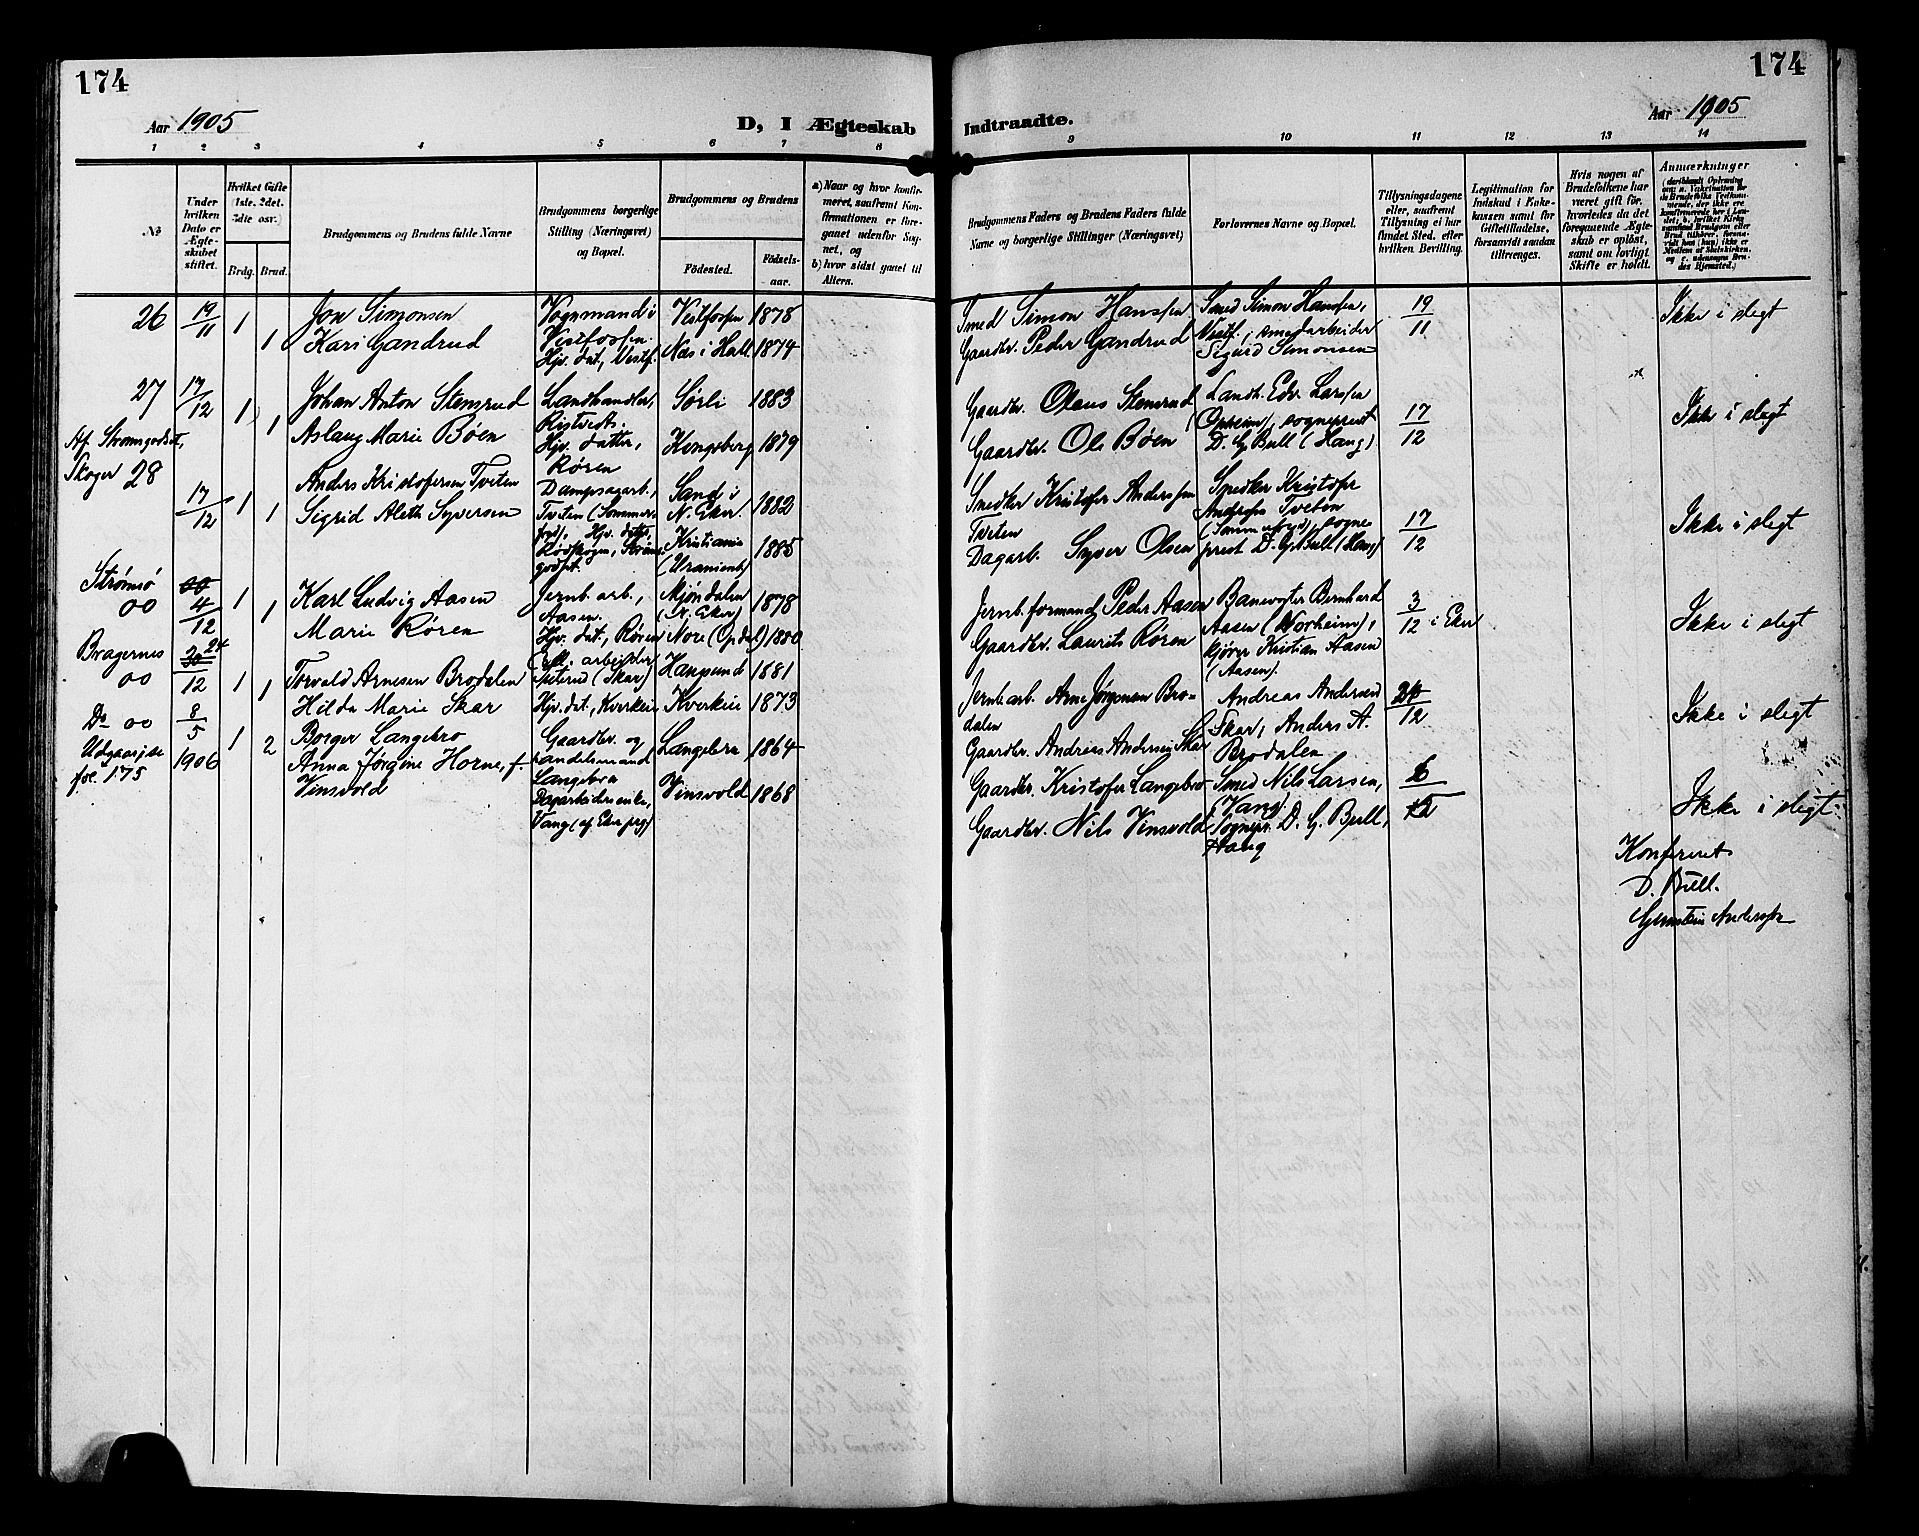 174
Aar 1905
D, I Ægteskab
1 2 3 4 5 6 7 8
№
Under hvilken Dato er Ægteskabet stiftet.
Hvilket Gifte (1ste, 2det, 3die osv.)
Brdg. Brud.
Brudgommens og Brudens fulde Navne
Brudgommens borgerlige Stilling (Næringsvei) og Bopæl.
Brudgommens og Brudens
Fødested. Fødselsaar.
a) Naar og hvor konfirmeret, saafremt Konfirmationen er foregaaet udenfor Sognet, og
b) hvor sidst gaaet til Alters.
26 19/11 1 Jon Simonsen Vognmand i Vestfossen. Vestfossen 1878
1 Kari Gandrud Hjv. dat., Vestf. Næs i Hall 1874
27 17/12 1 Johan Anton Stensrud Landhandler, Sørli 1883
1 Aslaug Marie Bøen Hjv. datter, Røren Kongsberg 1879
Af Strømsgodset, Skoger
28 17/12 1 Anders Kristofersen Tveten Dampsagarb., Tveten Sand i N. Eker. 1882
1 Sigrid Aleth Syversen Hjv. datt., Kristiania (Uranienb.) 1885
Strømsø
00 4/12 1 Karl Ludvig Aasen Jernb. arb., Aasen. Mjøndalen (N. Eker) 1878
1 Marie Røren Hjv. dat., Røren Nore (Opdal) 1880
Bragernes
00 24/12 1 Torvald Arnesen Brodalen arbeider (Skar) Haugsund 1881
1 Hilda Marie Skar Hjv. dat., Kverkein Kverkein 1873
Do 00 8/5 1906 1 Borger Langebro Gaardbr. og handelsmand Langebra Langebra 1864
2 Anna Jørgine Horne, f. Vinsvold Dagarbeiders enke, Vang (af Eker prg) Vinsvold 1868
Udgaar, se fol. 175
174
Aar 1905
Indtraadte.
9 10 11 12 13 14
Brudgommens Faders og Brudens Faders fulde Navne og borgerlige Stillinger (Næringsvei)
Forlovernes Navne og Bopæl.
Tillysningsdagene eller, saafremt Tillysning ei har fundet Sted, efter hvilken Bevilling.
Legitimation for Indskud i Enkekassen samt for Giftetilladelse, forsaavidt saadan tiltrænges.
Hvis nogen af Brudefolkene har været gift før, hvorledes da det foregaaende Ægteskab er opløst, samt om lovligt Skifte er holdt.
Anmærkninger
Smed Simon Hanssen Smed Simon Hanssen, Vestf., smedarbeider Sigurd Simonsen 19/11 Ikke i slegt
Gaardbr. Peder Gandrud
Gaardbr. Olaus Stensrud Landh. Edv. Larssen (Opheim), sogneprest D. G. Bull (Haug) 17/12 Ikke i slegt
Gaardbr. Ole Bøen
Snedker Kristofer Anderssen Tveten Snedker Kristofer Anderssen Tveten (Sommerfryd), sogneprest D. G. Bull (Haug) 17/12 Ikke i slegt
Dagarb. Syver Olsen
Jernb. formand Peder Aasen Banevogter Bernhard Aasen (Norheim), kjører Kristian Aasen (Aasen). 3/12 i Eker Ikke i slegt
Gaardbr. Laurits Røren
Jernb arb. Arne Jørgensen Brodalen Andreas Andersen Skar, Anders A. Brodalen /12 Ikke i slegt
Gaardbr. Andreas Andersen Skar
Gaardbr. Kristofer Langebro Smed Nils Larsen, (Vang). Sognepr. D. G. Bull, Haug 6/ Ikke i slegt.
Gaardbr. Nils Vinsvold
Konfereret
D. Bull.